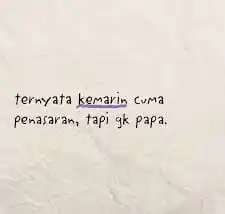 ternyata kemarin cuma
penasaran, tapi gk papa.